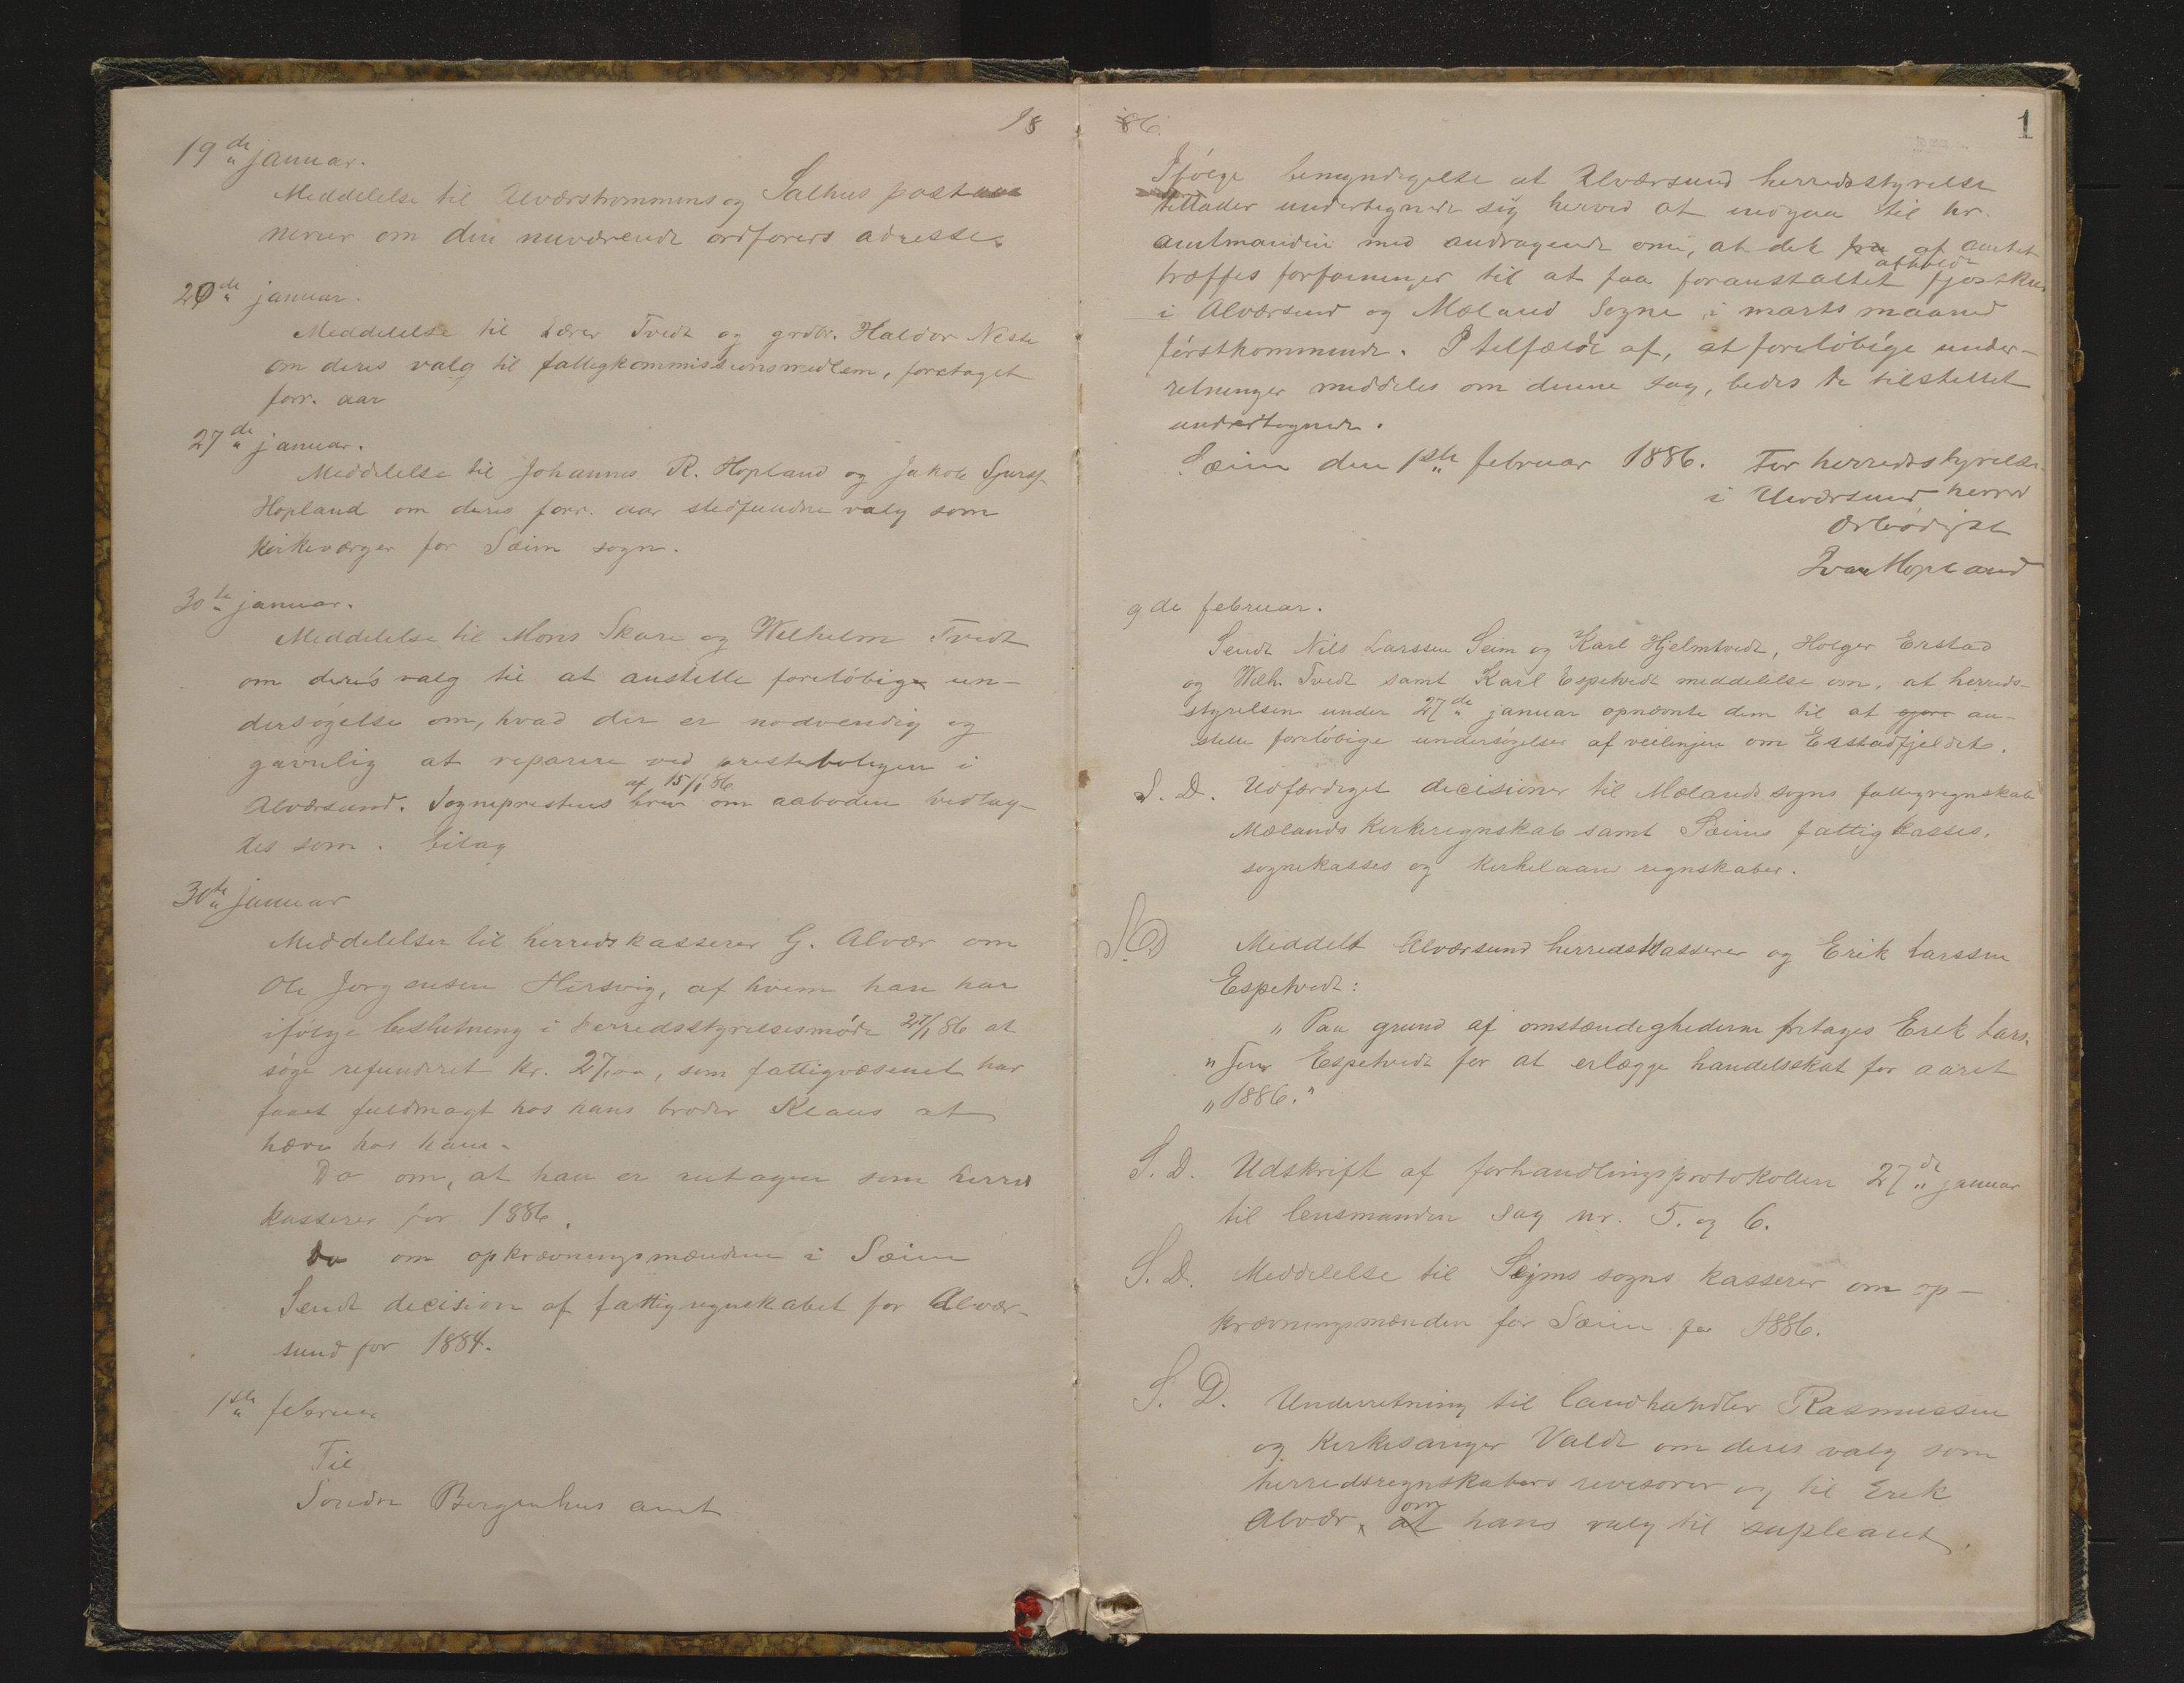 18
19de januar.
Meddelelse til Alværstrømmens og Salhus posta
nerier om den nuværende ordførers adresse.
20de januar.
Meddelelse til Lærer Tvedt og grdbr. Haldor Neste
om deres valg til fattigkommissionsmedlem, foretaget
forr. aar
27de januar.
Meddelelse til Johannes R. Hopland og Jakob Sjurss.
Hopland om deres forr. aar stedfundne valg som
kirkeværger for Sæim sogn.
30te januar.
Meddelelse til Mons Skare og Wilhelm Tvedt
om deres valg til at anstelle foreløbige un-
dersøgelse om, hvad der er nødvendig og
gavnlig at reparere ved presteboligen i
af 15/1 86
Alværsund. Sogneprestens brev om aaboden vedlag-
des som bilag
30te januar
Meddelelse til herredskasserer G. Alvær om
Ole Jørgensen Hersvig, af hvem han har
ifølge beslutning i herredsstyrelsesmøde 27/1 86 at
søge refunderet kr. 27,00, som fattigvæsenet har
faaet fuldmagt hos hans broder Klaus at
hæve hos ham.
Do om, at han er antagen som herreds
kasserer for 1886.
Do om opkrævningsmændene i Sæim
Sendt decision af fattigregnskabet for Alvær-
sund for 1884.
1ste februar
Til
Søndre Bergenhus amt
86.
1
Ifølge bemyndigelse at Alværsund herredsstyrelse
tillader undertegnede sig herved at indgaa til hr.
amtmanden med andragende om, at det fra af amtet
træffes forføininger til at faa foranstaltet afholdt
i Alværsund og Mæland Sogne i marts maaned
førstkommende. I tilfælde af, at foreløbige under-
retninger meddeles om denne sag, bedes de tilstillet
undertegnede.
Sæim den 1ste februar 1886. For herredsstyrelse
i Alværsund herred
Ærbødigst
Ivar Hopland
9de februar.
Sendt Nils Larssen Seim og Karl Hjelmtvedt, Holger Erstad
og Wilh. Tvedt samt Karl Espetvedt meddelelse om, at herreds-
styrelsen under 27de januar opnævnte dem til at gjøre an-
stille foreløbige undersøgelser af veilinjen om Erstadfjeldet.
S. D. Udfærdiget decisioner til Mælands sogns fattigregnskab
Mælands kirkeregnskab samt Sæims fattigkasses,
sognekasses og kirkelaans regnskaber.
S. D. Meddelt Alværsund herredskasserer og Erik Larssen
Espetvedt:
„Paa grund af omstændighederne fritages Erik Lars-
„sen Espetvedt for at erlægge handelsskat for aaret
„1886."
S. D. Udskrift af forhandlingsprotokollen 27de januar
til lensmanden sag nr. 5. og 6.
S. D. Meddelelse til Sejms sogns kasserer om op-
krævningsmænden for Sæim for 1886.
S. D. Underretning til landhandler Rasmussen
og kirkesanger Valde om deres valg som
herredsregnskabers revisorer og til Erik
Alvær, at om hans valg til supleant.